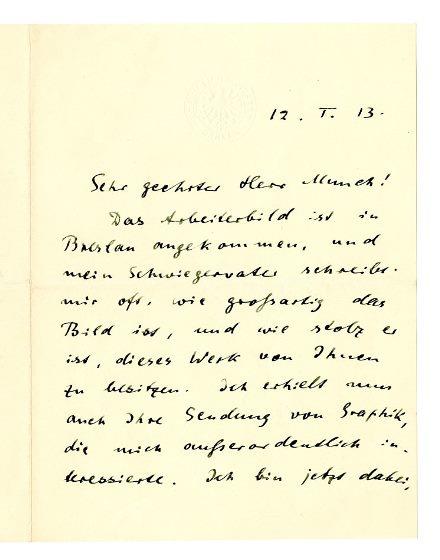 12. I. 13.
Sehr geehrter Herr Munch!
Das Arbeiterbild ist in
Breslau angekommen, und
mein Schwiegervater schreibt
mir oft, wie großartig das
Bild ist, und wie stolz er
ist, dieses Werk von Ihnen
zu besitzen. Ich erhielt nun
auch Ihre Sendung von Graphik,
die mich außerordentlich in-
teressierte. Ich bin jetzt dabei,